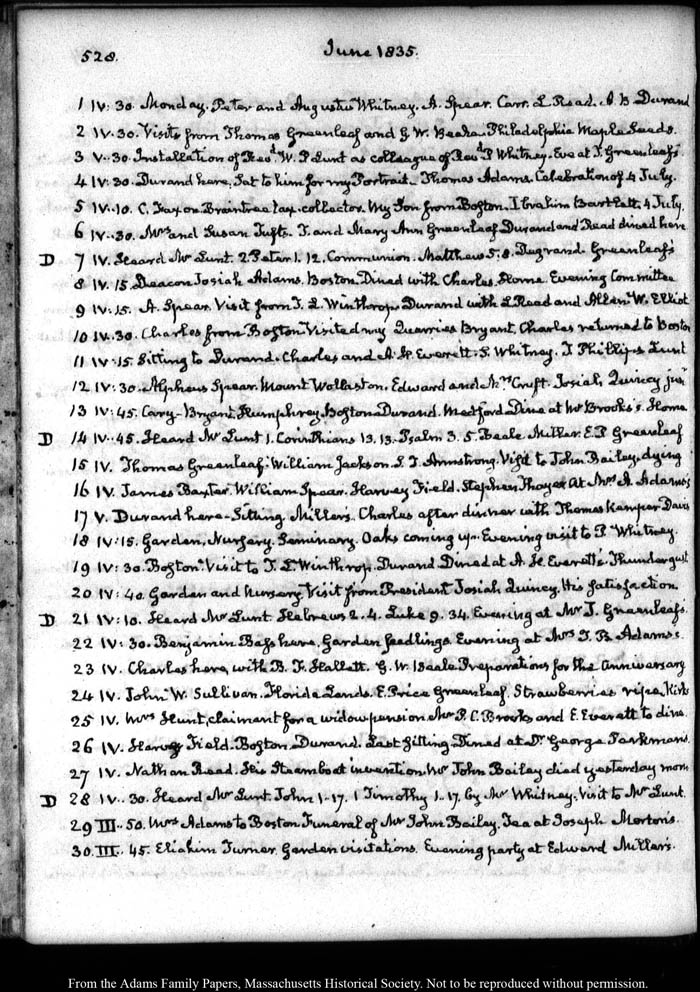 528.
June 1835.
1 IV: 30. Monday. Peter and Augustus Whitney. A. Spear. Carr. L Read. A. B Durand
2 IV. 30. Visits from Thomas Greenleaf and G. W. Beale. Philadelphia Maple Seeds.
3 V. 30. Installation of Revd. W. P Lunt as colleague of Revd. P Whitney. Eve at T. Greenleaf's
4 IV: 30. Durand here, Sat to him for my Portrait. Thomas Adams. Celebration of 4 July.
5 IV. 10. C. Fax on Braintree tax collector. My Son from Boston. Ibrahim Bartlett. 4 July.
6 IV. 30. Mrs and Susan Tufts. T. and Mary Ann Greenleaf Durand and Read dined here
D 7 IV. Heard Mr Lunt. 2 Peter 1. 12. Communion. Matthew 5. 8. Degrand. Greenleaf's
8 IV. 15. Deacon Josiah Adams. Boston Dined with Charles. Home. Evening Committee
9 IV: 15. A. Spear. Visit from T. L. Winthrop. Durand with L Read and Allen. W. Elliot
10 IV. 30. Charles from Boston Visited my Quarries Bryant. Charles returned to Boston
11 IV. 15. Sitting to Durand. Charles and A. H. Everett. S. Whitney. J Phillips Lunt
12 IV: 30. Alpheus Spear. Mount Wollaston. Edward and Mrs Cruft. Josiah Quincy junr
13 IV: 45. Carry. Bryant. Humphrey. Boston Durand. Medford Dine at Mr Brooks's. Home
D 14 IV. 45. Heard Mr Lunt 1. Corinthians 13. 13. Psalm 3. 5. Beale. Miller. E. P Greenleaf
15 IV. Thomas Greenleaf. William Jackson. S. T. Armstrong. Visit to John Bailey. dying
16 IV. James Baxter. William Spear. Harvey Field. Stephen Thayer At Mrs A. Adams's
17 V. Durand here. Sitting. Millers. Charles after dinner with Thomas Kemper Davis
18 IV: 15. Garden, Nursery. Seminary. Oaks coming up. Evening visit to P Whitney.
19 IV: 30. Boston. Visit to T. L. Winthrop. Durand Dined at A. H. Everett's. Thundergust
20 IV: 40. Garden and Nursery Visit from President Josiah Quincy. His satisfaction
D 21 IV: 10. Heard Mr Lunt Hebrews 2. 4. Luke 9. 34. Evening at Mr T. Greenleaf's.
22 IV: 30. Benjamin Bass here. Garden seedlings. Evening at Mrs T. B. Adams's.
23 IV. Charles here, with B. F. Hallett. G. W. Beale Preparations for the anniversary
24 IV. John W. Sullivan. Florida Lands. E. Price Greenleaf. Strawberries ripe. Kirk
25 IV. Mrs Hunt, claimant for a widow pension. Mr P. C. Brooks and E. Everett to dine.
26 IV. Harvey Field. Boston. Durand. Last sitting. Dined at Dr George Parkman's.
27 IV. Nathan Read. His Steamboat invention. Mr John Bailey died yesterday morn
D 28 IV. 30. Heard Mr Lunt John 1. 17. 1 Timothy 1. 17. by Mr Whitney. Visit to Mr Lunt.
29 III. 50. Mrs Adams to Boston Funeral of Mr John Bailey. Tea at Joseph Morton's.
30. III. 45. Eliakim Turner. Garden visitations. Evening party at Edward Miller's.
From the Adams Family Papers, Massachusetts Historical Society. Not to be reproduced without permission.